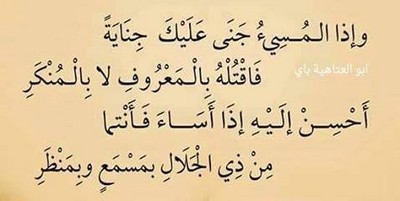 وإذا الـمُـسِـيءُ جَنَى عَلَيْكَ جِنَايَةً
فَاقْتُلْهُ بِالْمَعْرُوفِ لا بِالْمُنْكَرِ
ابو العتاهية باي
أَحْسِـنْ إلَيْـهِ إذَا أَسَـاءَ فَـأَنْتما
مِنْ ذِي الْجَلَالِ بِمَسْمَعٍ وبِمَنْظَرِ